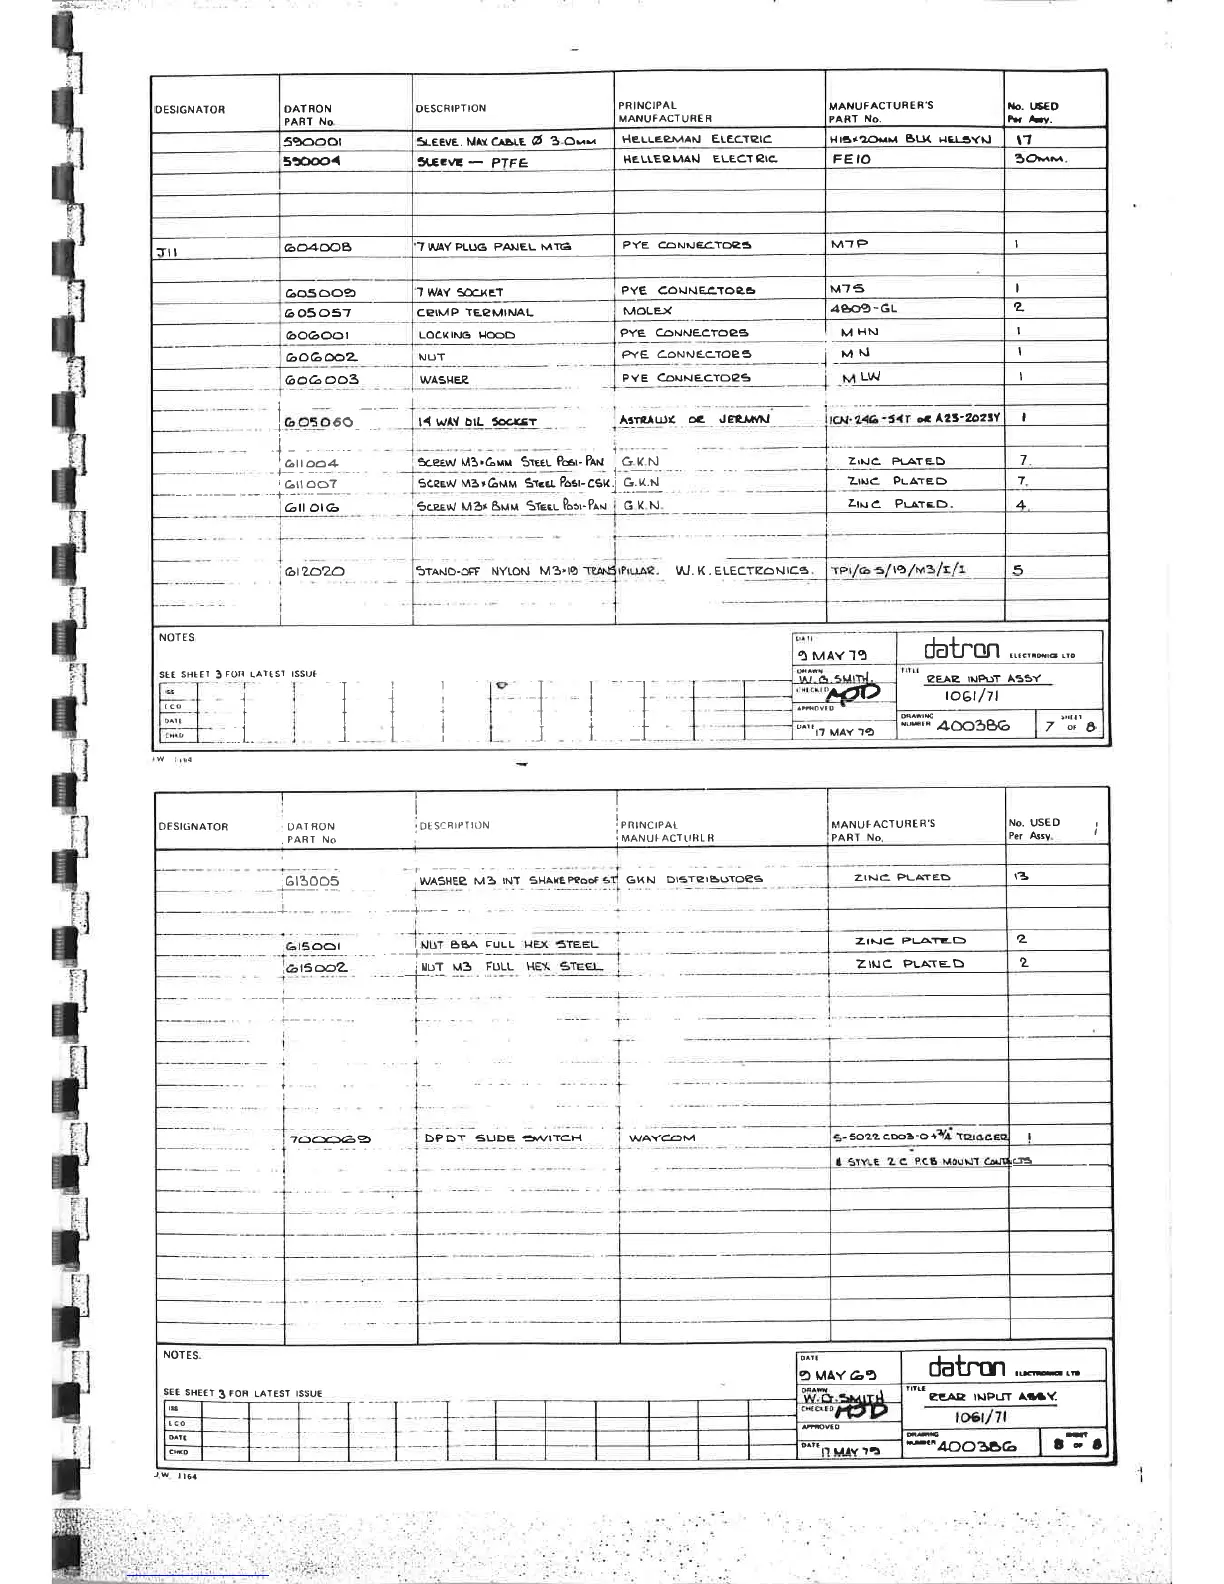 DESIGNATOR DATRON PART No. DESCRIPTION PRINCIPAL MANUFACTURER MANUFACTURER'S PART No. No. USED Per Assy.
590001 SLEEVE. MAX CABLE Ø 3.0MM HELLERMAN ELECTRIC H15×20MM BLK HELSYN 17
590004 SLEEVE — PTFE HELLERMAN ELECTRIC FE10 30MM.
J11 604008 7 WAY PLUG PANEL MTG PYE CONNECTORS M7P 1
605009 7 WAY SOCKET PYE CONNECTORS M7S 1
605057 CRIMP TERMINAL MOLEX 4809-GL 2
606001 LOCKING HOOD PYE CONNECTORS M HN 1
606002 NUT PYE CONNECTORS M N 1
606003 WASHER PYE CONNECTORS M LW 1
605060 14 WAY DIL SOCKET ASTRALUX OR JERMYN ICN-246-S4T OR A23-2023Y 1
611004 SCREW M3×6MM STEEL POSI-PAN G.K.N ZINC PLATED 7.
611007 SCREW M3×6MM STEEL POSI-CSK. G.K.N ZINC PLATED 7.
611016 SCREW M3× 8MM STEEL POSI-PAN G.K.N. ZINC PLATED. 4.
612020 STAND-OFF NYLON M3×19 TRANSIPILLAR. W.K. ELECTRONICS. TP1/6 5/19/M3/I/1 5
NOTES
SEE SHEET 3 FOR LATEST ISSUE
ISS
ECO
DATE
CHKD
DATE 9 MAY 79
DRAWN W.G. SMITH.
CHECKED
APPROVED
DATE 17 MAY 79
datron ELECTRONICS LTD
TITLE REAR INPUT ASSY
1061/71
DRAWING NUMBER 400386 SHEET 7 OF 8
J.W. 1164
DESIGNATOR DATRON PART No DESCRIPTION PRINCIPAL MANUFACTURER MANUFACTURER'S PART No. No. USED Per Assy.
613005 WASHER M3 INT SHAKEPROOF ST GKN DISTRIBUTORS ZINC PLATED 13
615001 NUT 8BA FULL HEX STEEL ZINC PLATED 2
615002 NUT M3 FULL HEX STEEL ZINC PLATED 2
700069 DPDT SLIDE SWITCH WAYCOM S-5022 CD03-0 +3/4" TRIGGER 1
& STYLE 2C PCB MOUNT CONTACTS
NOTES.
SEE SHEET 3 FOR LATEST ISSUE
ISS
ECO
DATE
CHKD
DATE 9 MAY 69
DRAWN W.G. SMITH
CHECKED
APPROVED
DATE 17 MAY 79
datron ELECTRONICS LTD
TITLE REAR INPUT ASSY.
1061/71
DRAWING NUMBER 400386 SHEET 8 OF 8
J.W. 1164